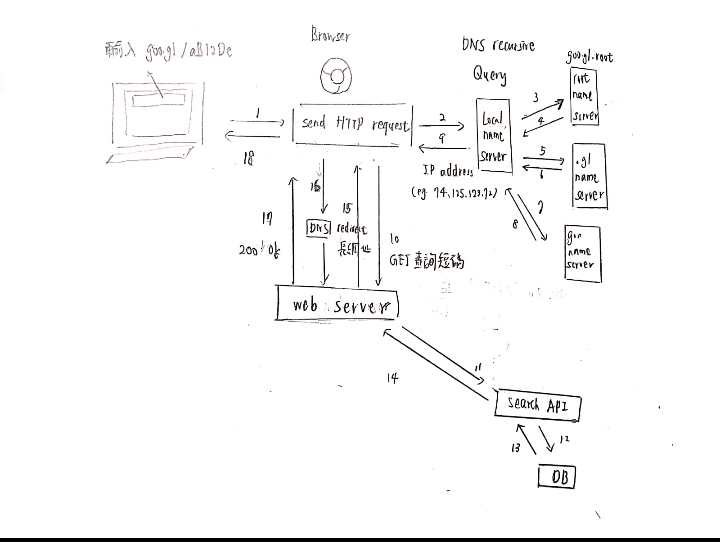 輸入 goo.gl/aB12De
Browser
DNS recursive
Query
goo.gl.root
root
name
server
1
send HTTP request
2
9
Local
name
server
3
4
5
6
.gl
name
server
18
IP address
(eg. 74.125.123.72)
7
8
goo
name
server
16
15
17
200 ok
DNS redirect
長網址
10
GET 查詢短碼
web server
11
14
search API
12
13
DB